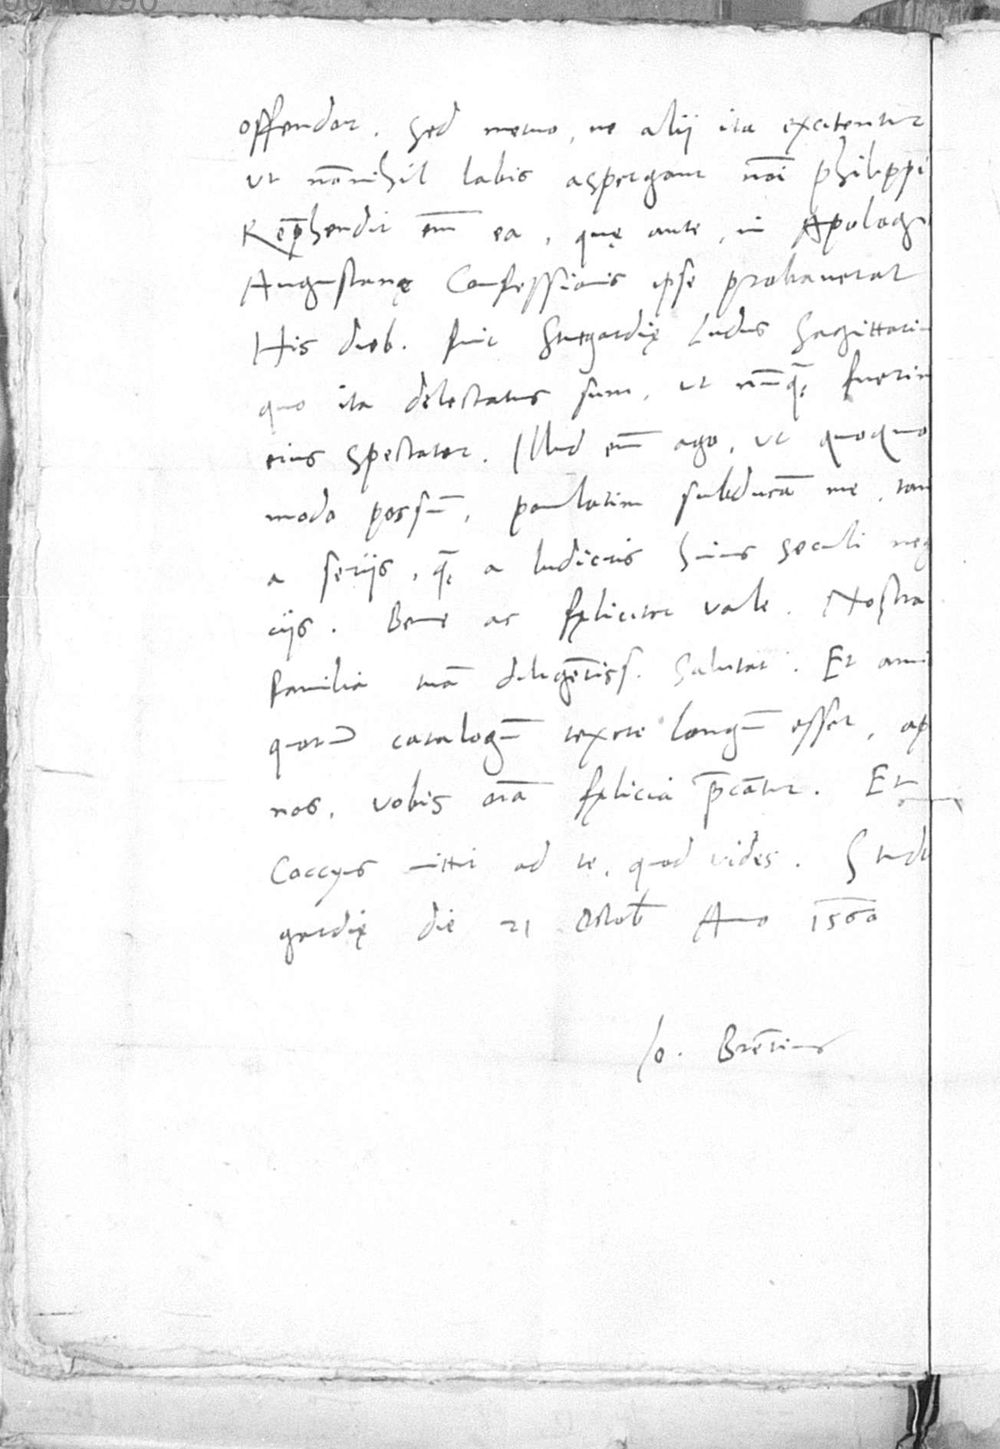 offendor. Sed metuo, ne alij ita excitentur
ut nōnihil labis aspergant nōi Philippi
Rep̄hendit em̄ ea, quę ante, in Apologi
Augustanę Confessionis ipse probauerat
His dieb. fuit Stutgardię Ludus Sagittariu
quo ita delectatus sum, ut nūq̄ fuerim
eius spectator. Illud em̄ ago, ut quoquo
modo possū, paulatim subducā me, tam
a serijs, q̄ a ludicris huius seculi neg
cijs. Bene ac fęliciter vale. Nostra
familia tuā diligētiss. salutat. Et ami
quorū catalogū texere longū esset, ap
nos, vobis oīa fęlicia p̄cātur. Et
Coccyus mittit ad te, quod vides. Stud
gardię die 21 Octob Anno 1560
Io. Brētius